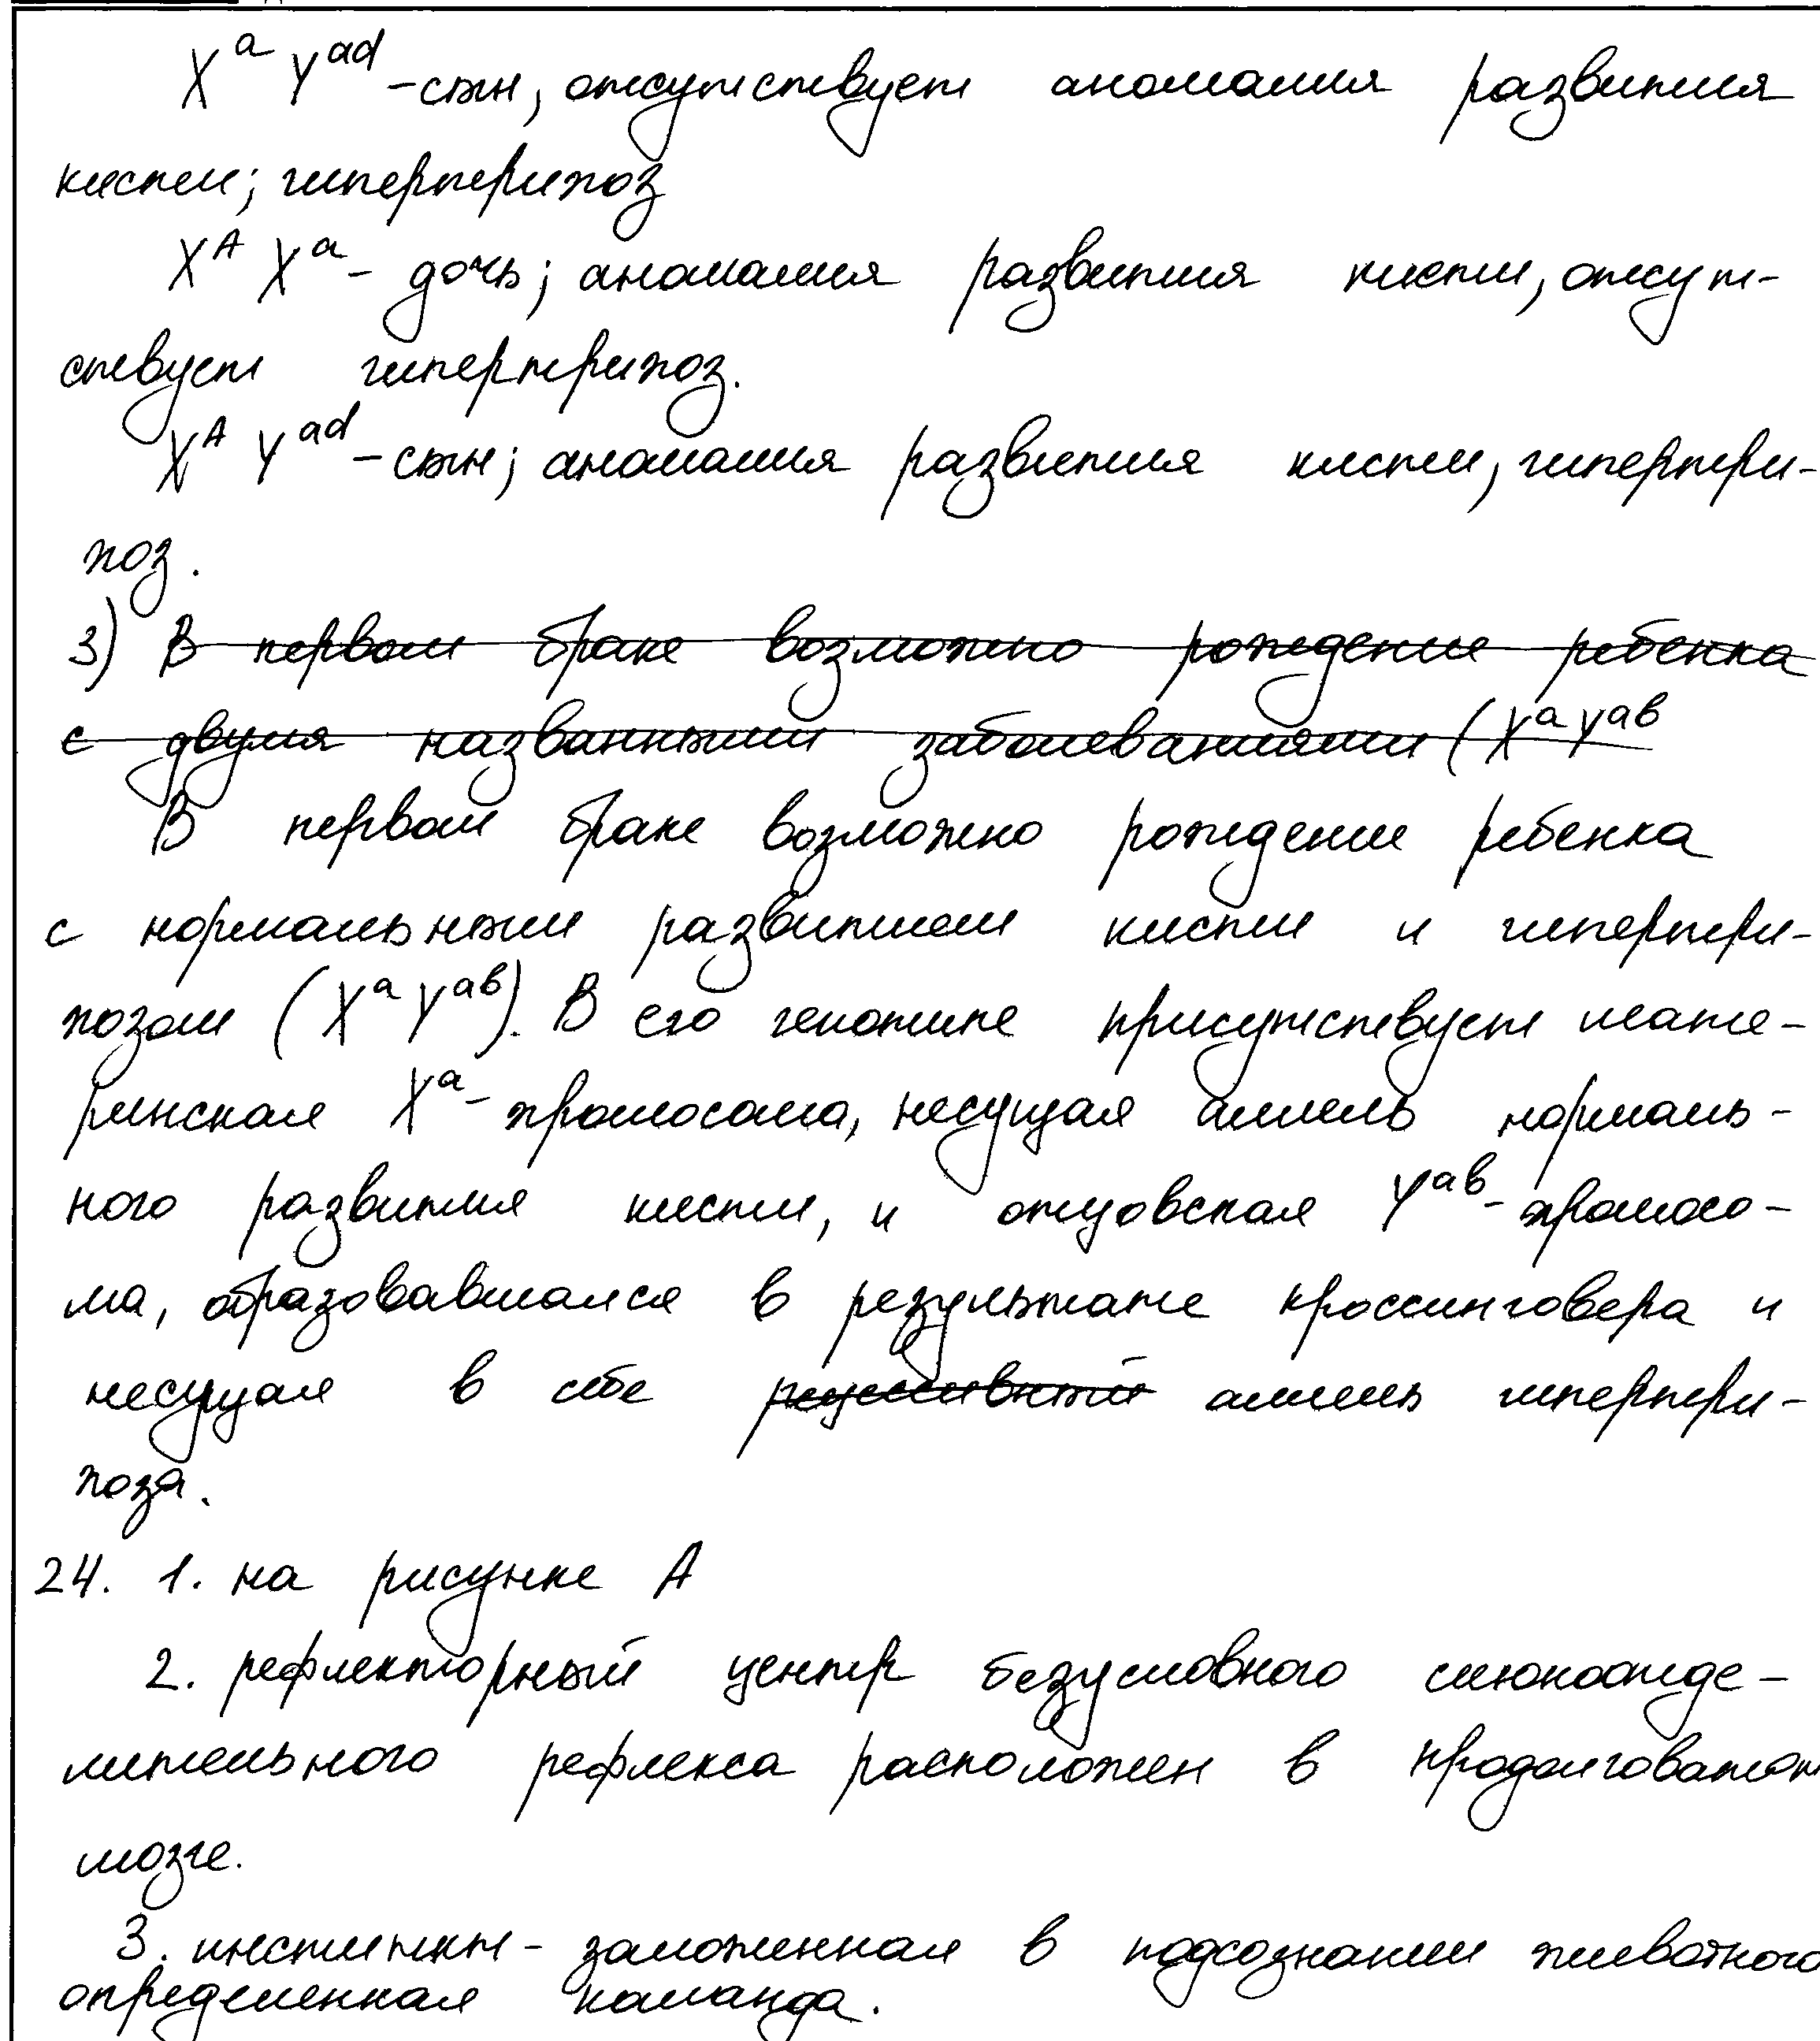 Xᵃ Yᵃᵈ - сын, отсутствует аномалия развития
кисти; гипертрихоз
Xᴬ Xᵃ - дочь; аномалия развития кисти, отсут-
ствует гипертрихоз.
Xᴬ Yᵃᵈ - сын; аномалия развития кисти, гипертри-
хоз.
3) В первом браке возможно рождение ребенка
с двумя названными заболеваниями (Xᵃ Yᵃᵇ
В первом браке возможно рождение ребенка
с нормальным развитием кисти и гипертри-
хозом (Xᵃ Yᵃᵇ). В его генотипе присутствует мате-
ринская Xᵃ - хромосома, несущая аллель нормаль-
ного развития кисти, и отцовская Yᵃᵇ - хромосо-
ма, образовавшаяся в результате кроссинговера и
несущая в себе рецессивный аллель гипертри-
хоза.
24. 1. на рисунке А
2. рефлекторный центр безусловного слюноотде-
лительного рефлекса расположен в продолговатом
мозге.
3. инстинкт - заложенная в подсознании животного
определенная команда.